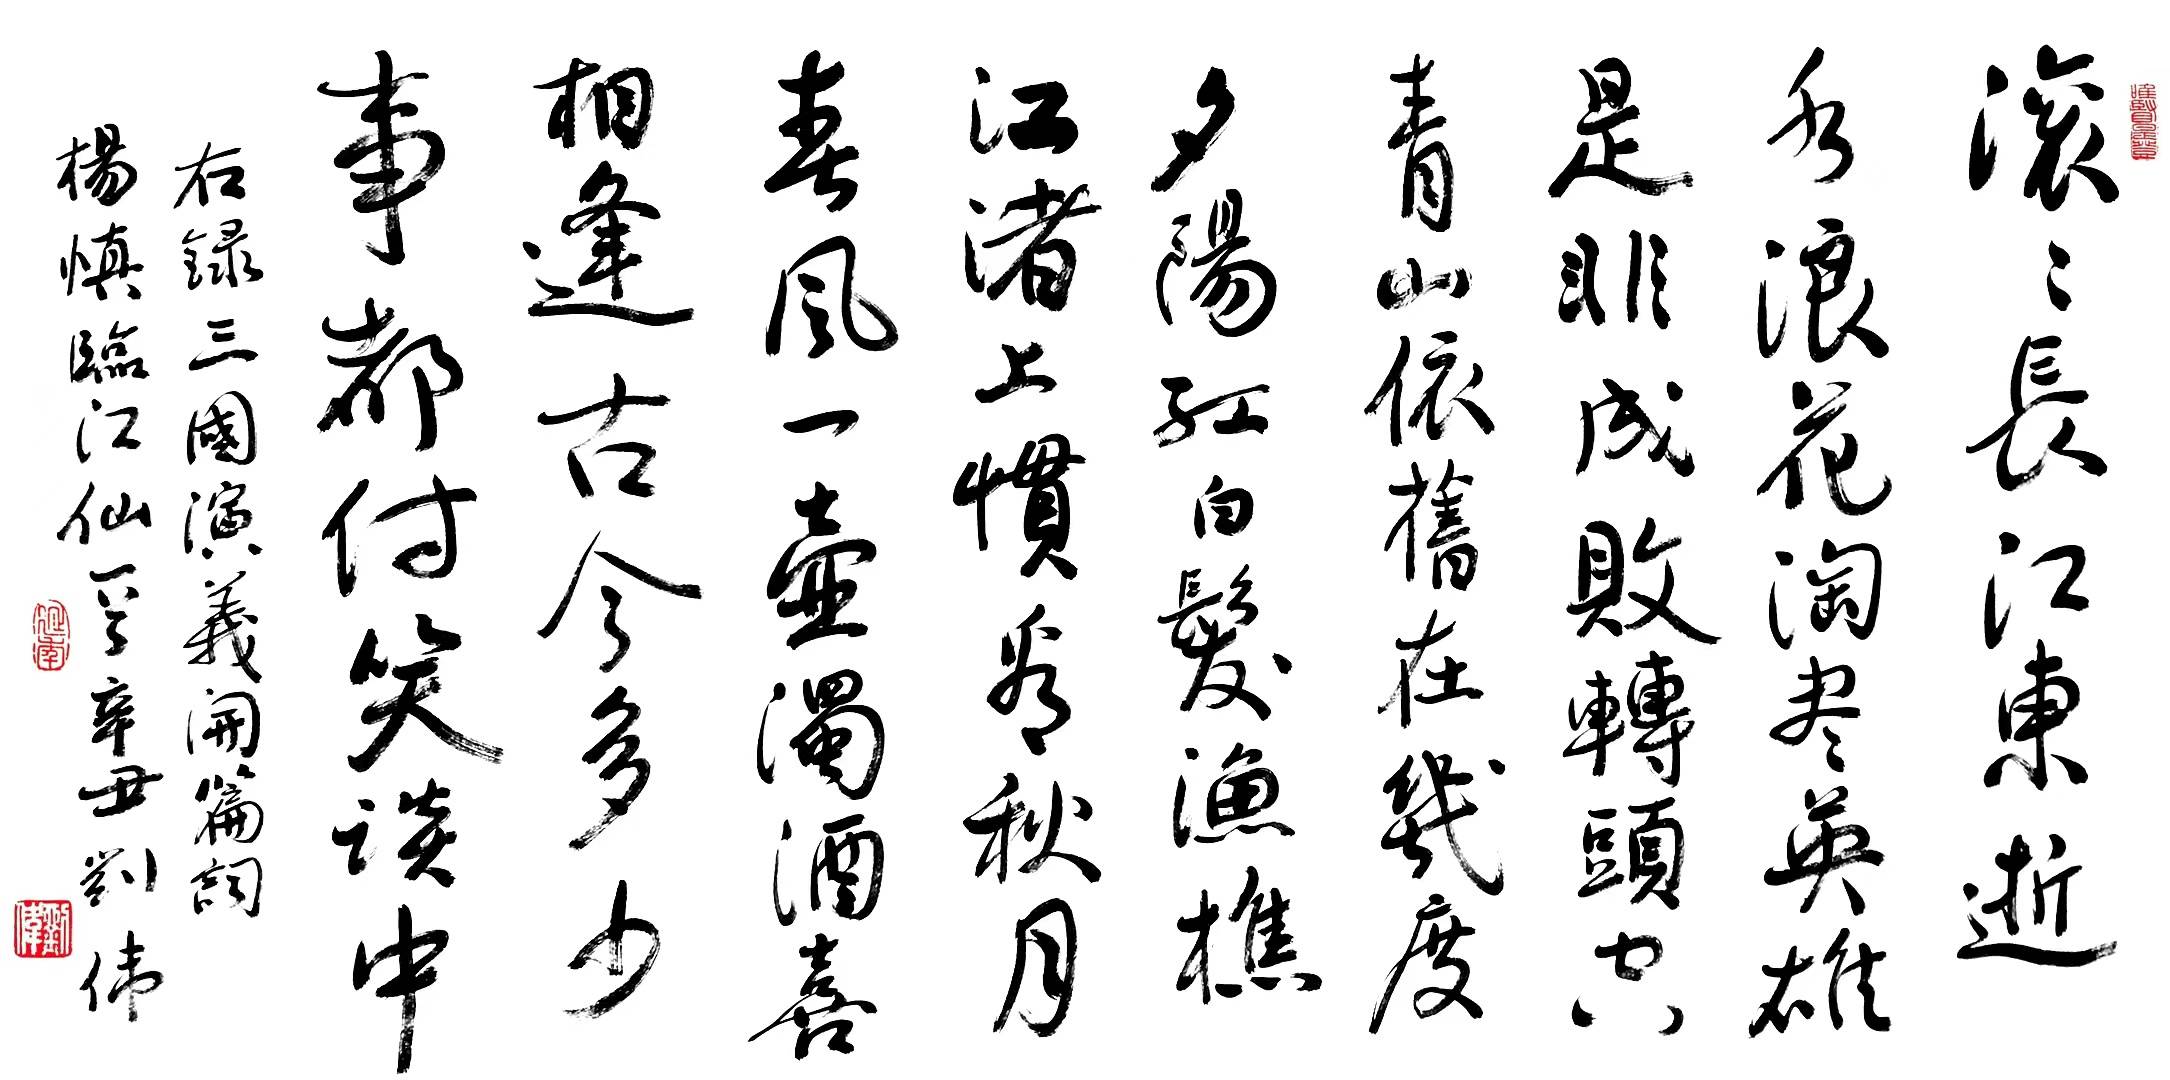 滚〻長江東逝
水浪花淘尽英雄
是非成敗轉頭空
青山依舊在幾度
夕陽红白髮漁樵
江渚上慣看秋月
春風一壺濁酒喜
相逢古今多少
事都付笑談中
右録三國演義開篇詞
楊慎臨江仙辛丑劉伟
劉偉